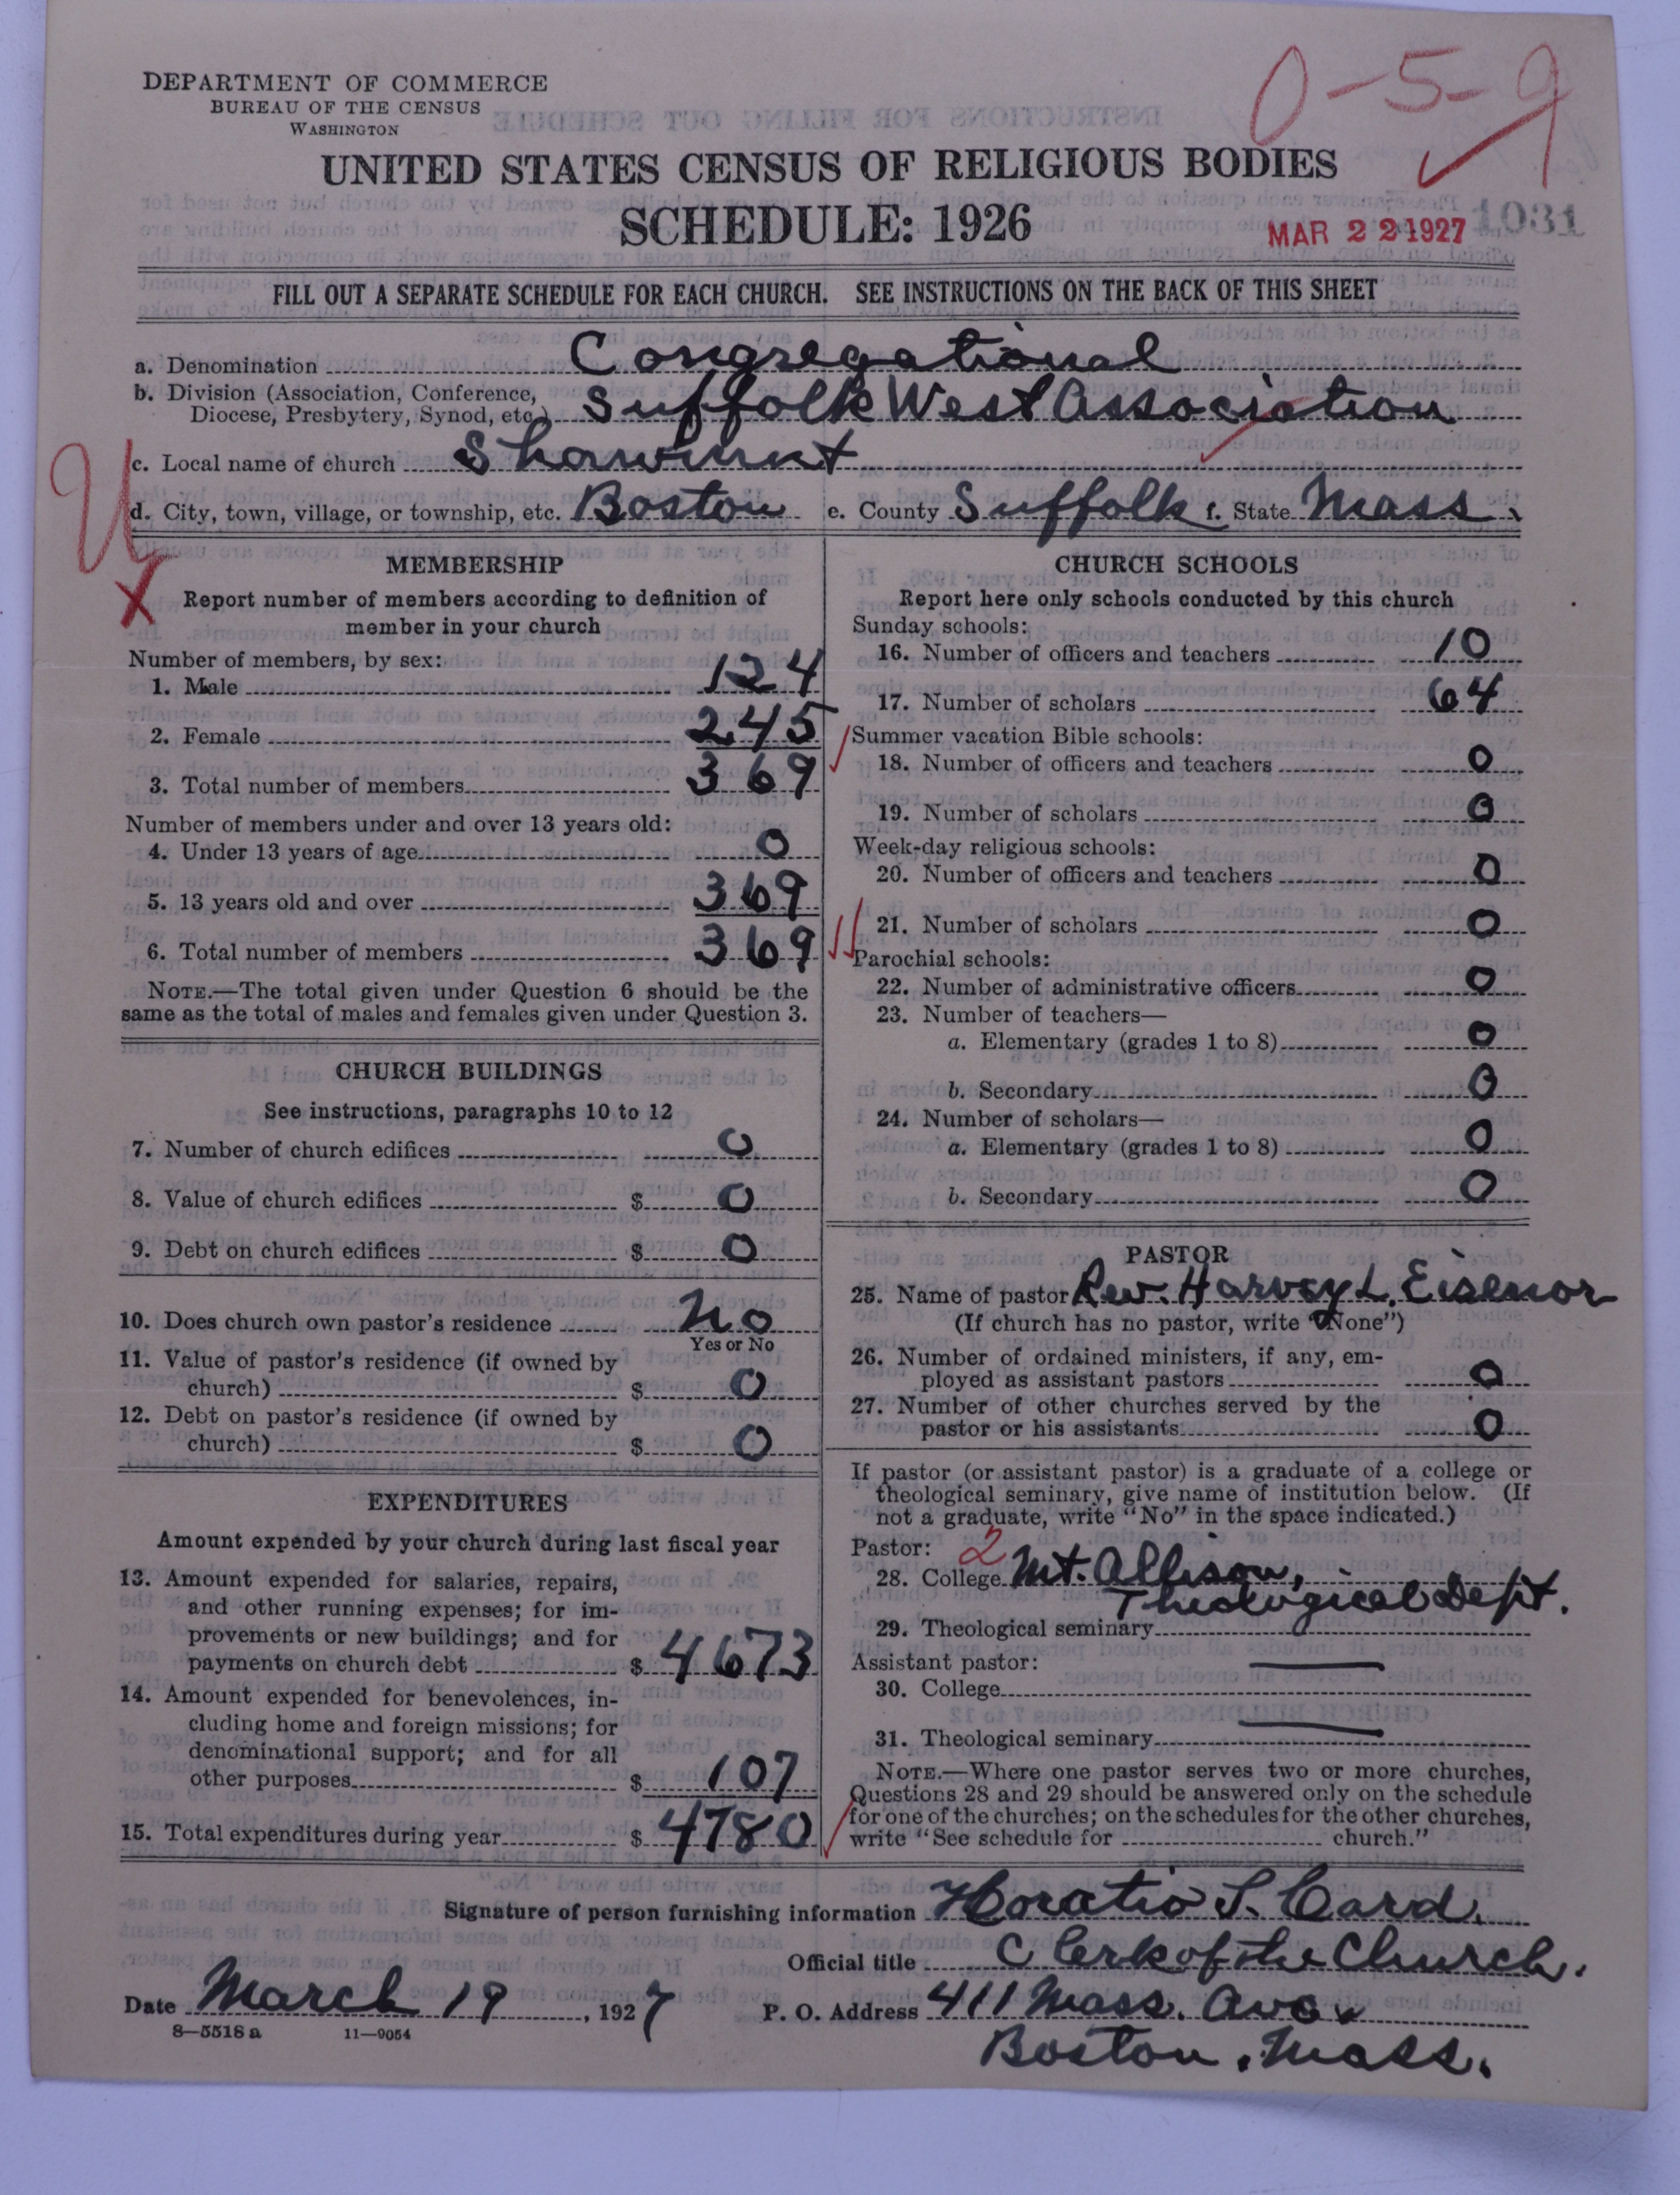 DEPARTMENT OF COMMERCE
BUREAU OF THE CENSUS
WASHINGTON
0-5-9
UNITED STATES CENSUS OF RELIGIOUS BODIES
SCHEDULE: 1926
MAR 22 1927
1031
FILL OUT A SEPARATE SCHEDULE FOR EACH CHURCH. SEE INSTRUCTIONS ON THE BACK OF THIS SHEET
a. Denomination Congregational
b. Division (Association, Conference,
Diocese, Presbytery, Synod, etc.) Suffolk West Association
c. Local name of church Shawmut
d. City, town, village, or township, etc. Boston e. County Suffolk f. State Mass.
MEMBERSHIP
Report number of members according to definition of
member in your church
Number of members, by sex:
1. Male 124
2. Female 245
3. Total number of members 369
Number of members under and over 13 years old:
4. Under 13 years of age 0
5. 13 years old and over 369
6. Total number of members 369
NOTE.—The total given under Question 6 should be the
same as the total of males and females given under Question 3.
CHURCH BUILDINGS
See instructions, paragraphs 10 to 12
7. Number of church edifices 0
8. Value of church edifices $ 0
9. Debt on church edifices $ 0
10. Does church own pastor's residence No
Yes or No
11. Value of pastor's residence (if owned by
church) $ 0
12. Debt on pastor's residence (if owned by
church) $ 0
EXPENDITURES
Amount expended by your church during last fiscal year
13. Amount expended for salaries, repairs,
and other running expenses; for im-
provements or new buildings; and for
payments on church debt $ 4673
14. Amount expended for benevolences, in-
cluding home and foreign missions; for
denominational support; and for all
other purposes $ 107
15. Total expenditures during year $ 4780
CHURCH SCHOOLS
Report here only schools conducted by this church
Sunday schools:
16. Number of officers and teachers 10
17. Number of scholars 64
Summer vacation Bible schools:
18. Number of officers and teachers 0
19. Number of scholars 0
Week-day religious schools:
20. Number of officers and teachers 0
21. Number of scholars 0
Parochial schools:
22. Number of administrative officers 0
23. Number of teachers—
a. Elementary (grades 1 to 8) 0
b. Secondary 0
24. Number of scholars—
a. Elementary (grades 1 to 8) 0
b. Secondary 0
PASTOR
25. Name of pastor Rev. Harvey L. Eisenor
(If church has no pastor, write "None")
26. Number of ordained ministers, if any, em-
ployed as assistant pastors 0
27. Number of other churches served by the
pastor or his assistants 0
If pastor (or assistant pastor) is a graduate of a college or
theological seminary, give name of institution below. (If
not a graduate, write "No" in the space indicated.)
Pastor: 2
28. College Mt. Allison,
Theological Dept.
29. Theological seminary
Assistant pastor:
30. College
31. Theological seminary
NOTE.—Where one pastor serves two or more churches,
Questions 28 and 29 should be answered only on the schedule
for one of the churches; on the schedules for the other churches,
write "See schedule for church."
Signature of person furnishing information Horatio S. Card.
Official title Clerk of the Church.
Date March 19, 1927 P. O. Address 411 Mass. Ave.
8—5518 a 11—9054
Boston, Mass.